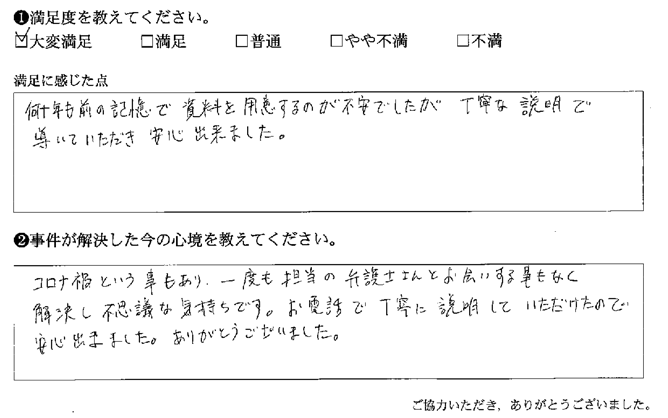 ❶満足度を教えてください。
☑大変満足 □満足 □普通 □やや不満 □不満
満足に感じた点
何十年も前の記憶で 資料を用意するのが不安でしたが 丁寧な説明で
導いていただき安心出来ました。
❷事件が解決した今の心境を教えてください。
コロナ禍という事もあり、一度も担当の弁護士さんとお会いする事もなく
解決し不思議な気持ちです。お電話で丁寧に説明していただけたので
安心出来ました。ありがとうございました。
ご協力いただき，ありがとうございました。